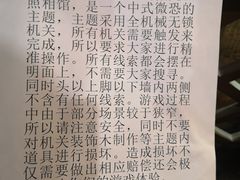 照相馆，是一个中式微恐的
主题，主题采用全机械无锁
机关，所有机关需要触发来
完成，所以要求大家进行精
准操作。所有线索都会摆在
明面上，不需要大家搜寻。
同时头以上脚以下墙内两侧
不含有任何线索。游戏过程
中由于部分场景较于狭窄，
所以请注意安全，同时不要
对机关装饰木制作等主题内
道具进行损坏。造成损坏不
仅需要做出相应赔偿还会极
的游戏体验